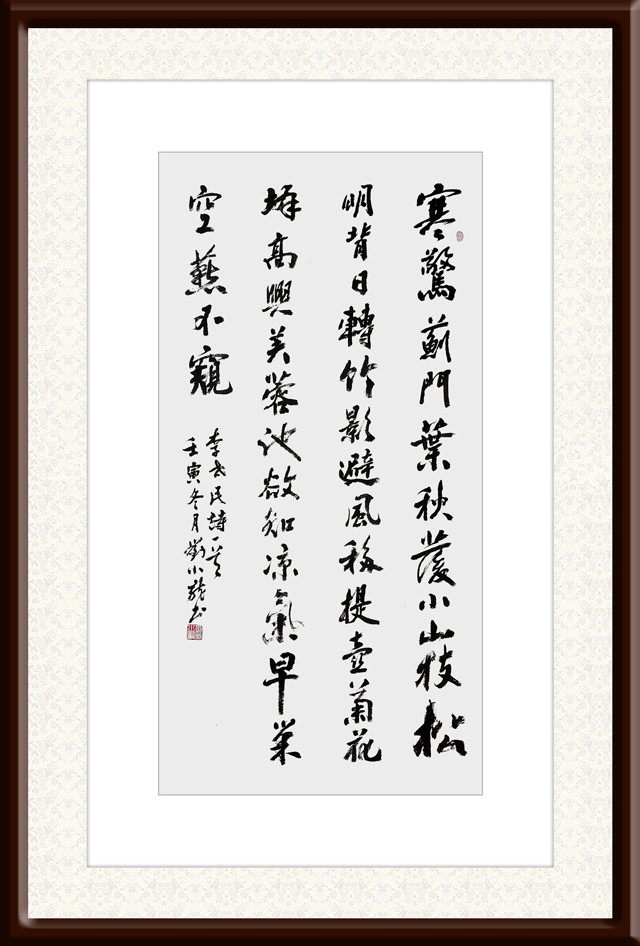 寒驚薊門葉秋發小山枝松
明背日轉竹影避風移提壺菊花
岸高興芙蓉池欲知涼氣早巢
空燕不窺
李世民詩一首
壬寅冬月劉小龍书